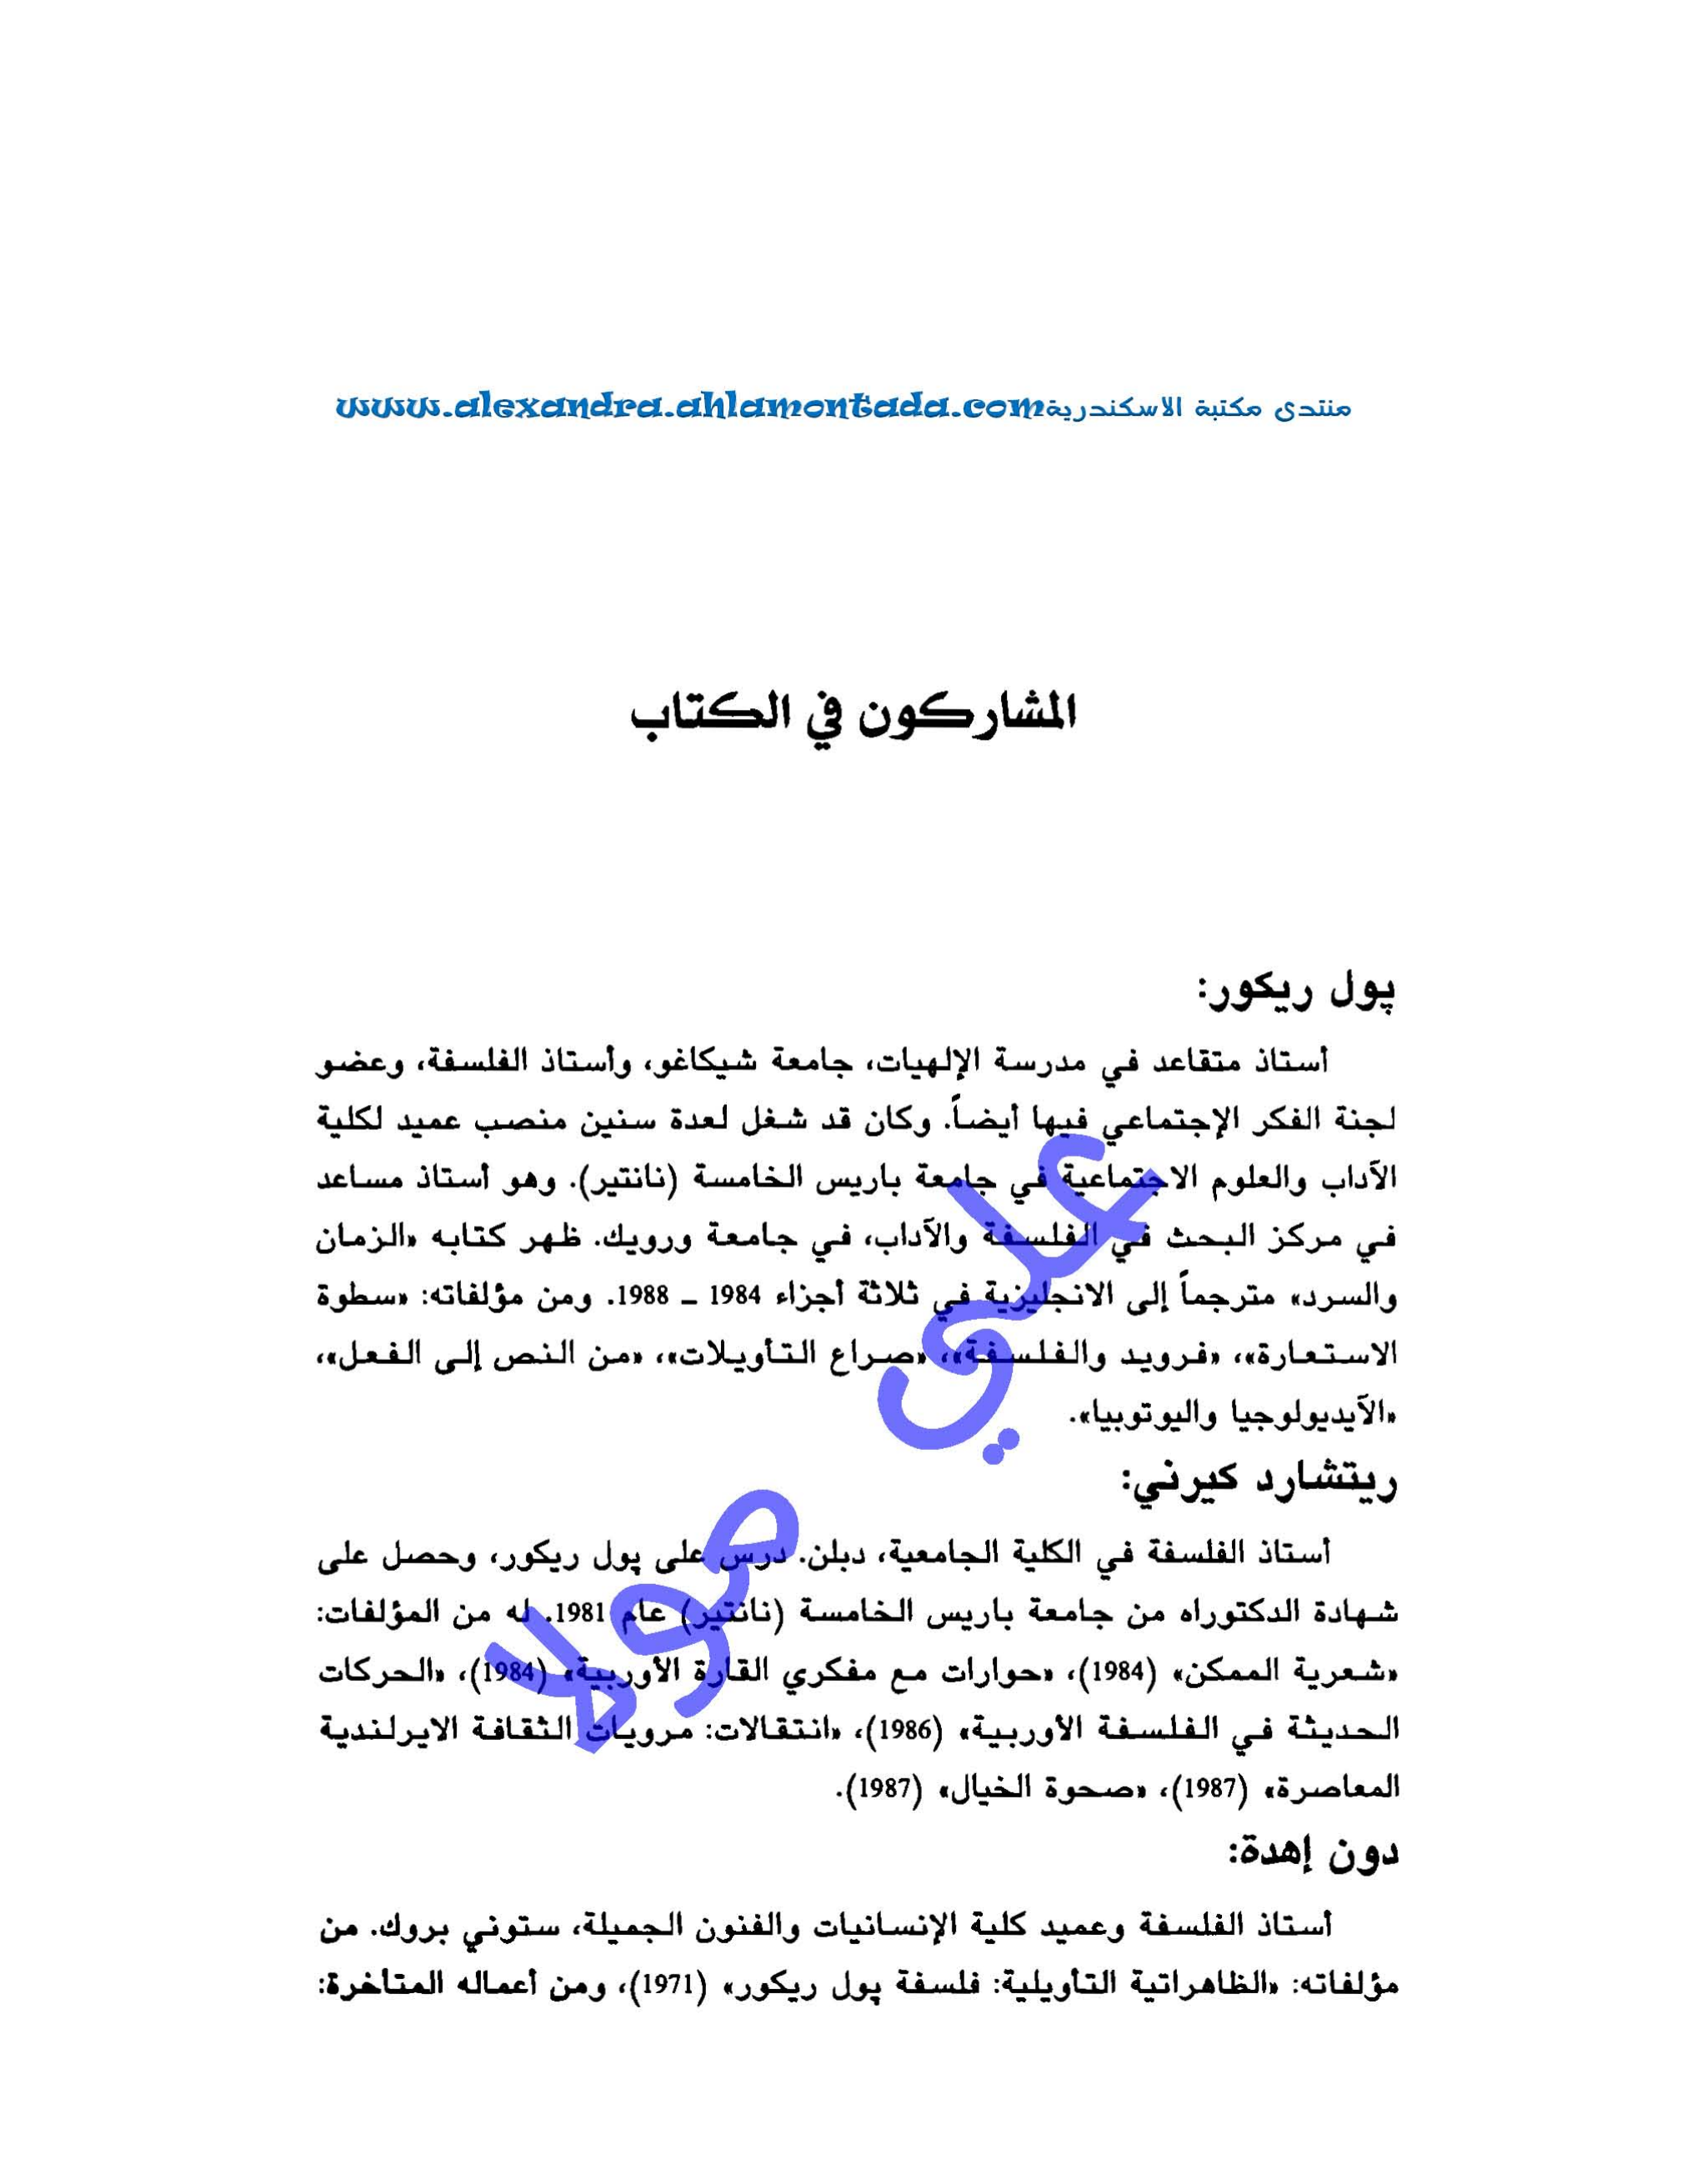 منتدى مكتبة الاسكندرية www.alexandra.ahlamontada.com
المشاركون في الكتاب
پول ريكور:
أستاذ متقاعد في مدرسة الإلهيات، جامعة شيكاغو، وأستاذ الفلسفة، وعضو
لجنة الفكر الإجتماعي فيها أيضاً. وكان قد شغل لعدة سنين منصب عميد لكلية
الآداب والعلوم الاجتماعية في جامعة باريس الخامسة (نانتير). وهو أستاذ مساعد
في مركز البحث في الفلسفة والآداب، في جامعة ورويك. ظهر كتابه «الزمان
والسرد» مترجماً إلى الانجليزية في ثلاثة أجزاء 1984 ـ 1988. ومن مؤلفاته: «سطوة
الاستعارة»، «فرويد والفلسفة»، «صراع التأويلات»، «من النص إلى الفعل»،
«الآيديولوجيا واليوتوبيا».
ريتشارد كيرني:
أستاذ الفلسفة في الكلية الجامعية، دبلن. درس على پول ريكور، وحصل على
شهادة الدكتوراه من جامعة باريس الخامسة (نانتير) عام 1981. له من المؤلفات:
«شعرية الممكن» (1984)، «حوارات مع مفكري القارة الأوربية» (1984)، «الحركات
الحديثة في الفلسفة الأوربية» (1986)، «انتقالات: مرويات الثقافة الايرلندية
المعاصرة» (1987)، «صحوة الخيال» (1987).
دون إهدة:
أستاذ الفلسفة وعميد كلية الإنسانيات والفنون الجميلة، ستوني بروك. من
مؤلفاته: «الظاهراتية التأويلية: فلسفة پول ريكور» (1971)، ومن أعماله المتأخرة:
علي مولا